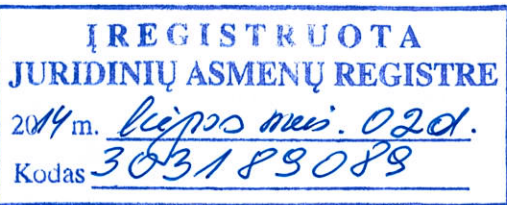 ĮREGISTRUOTA
JURIDINIŲ ASMENŲ REGISTRE
2014 m. liepos mėn. 02 d.
Kodas 303189089